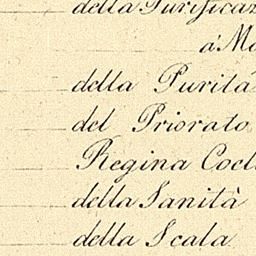 della Purificaz
a' Mo
della Purità
del Priorato
Regina Coel
della Sanità
della Scala